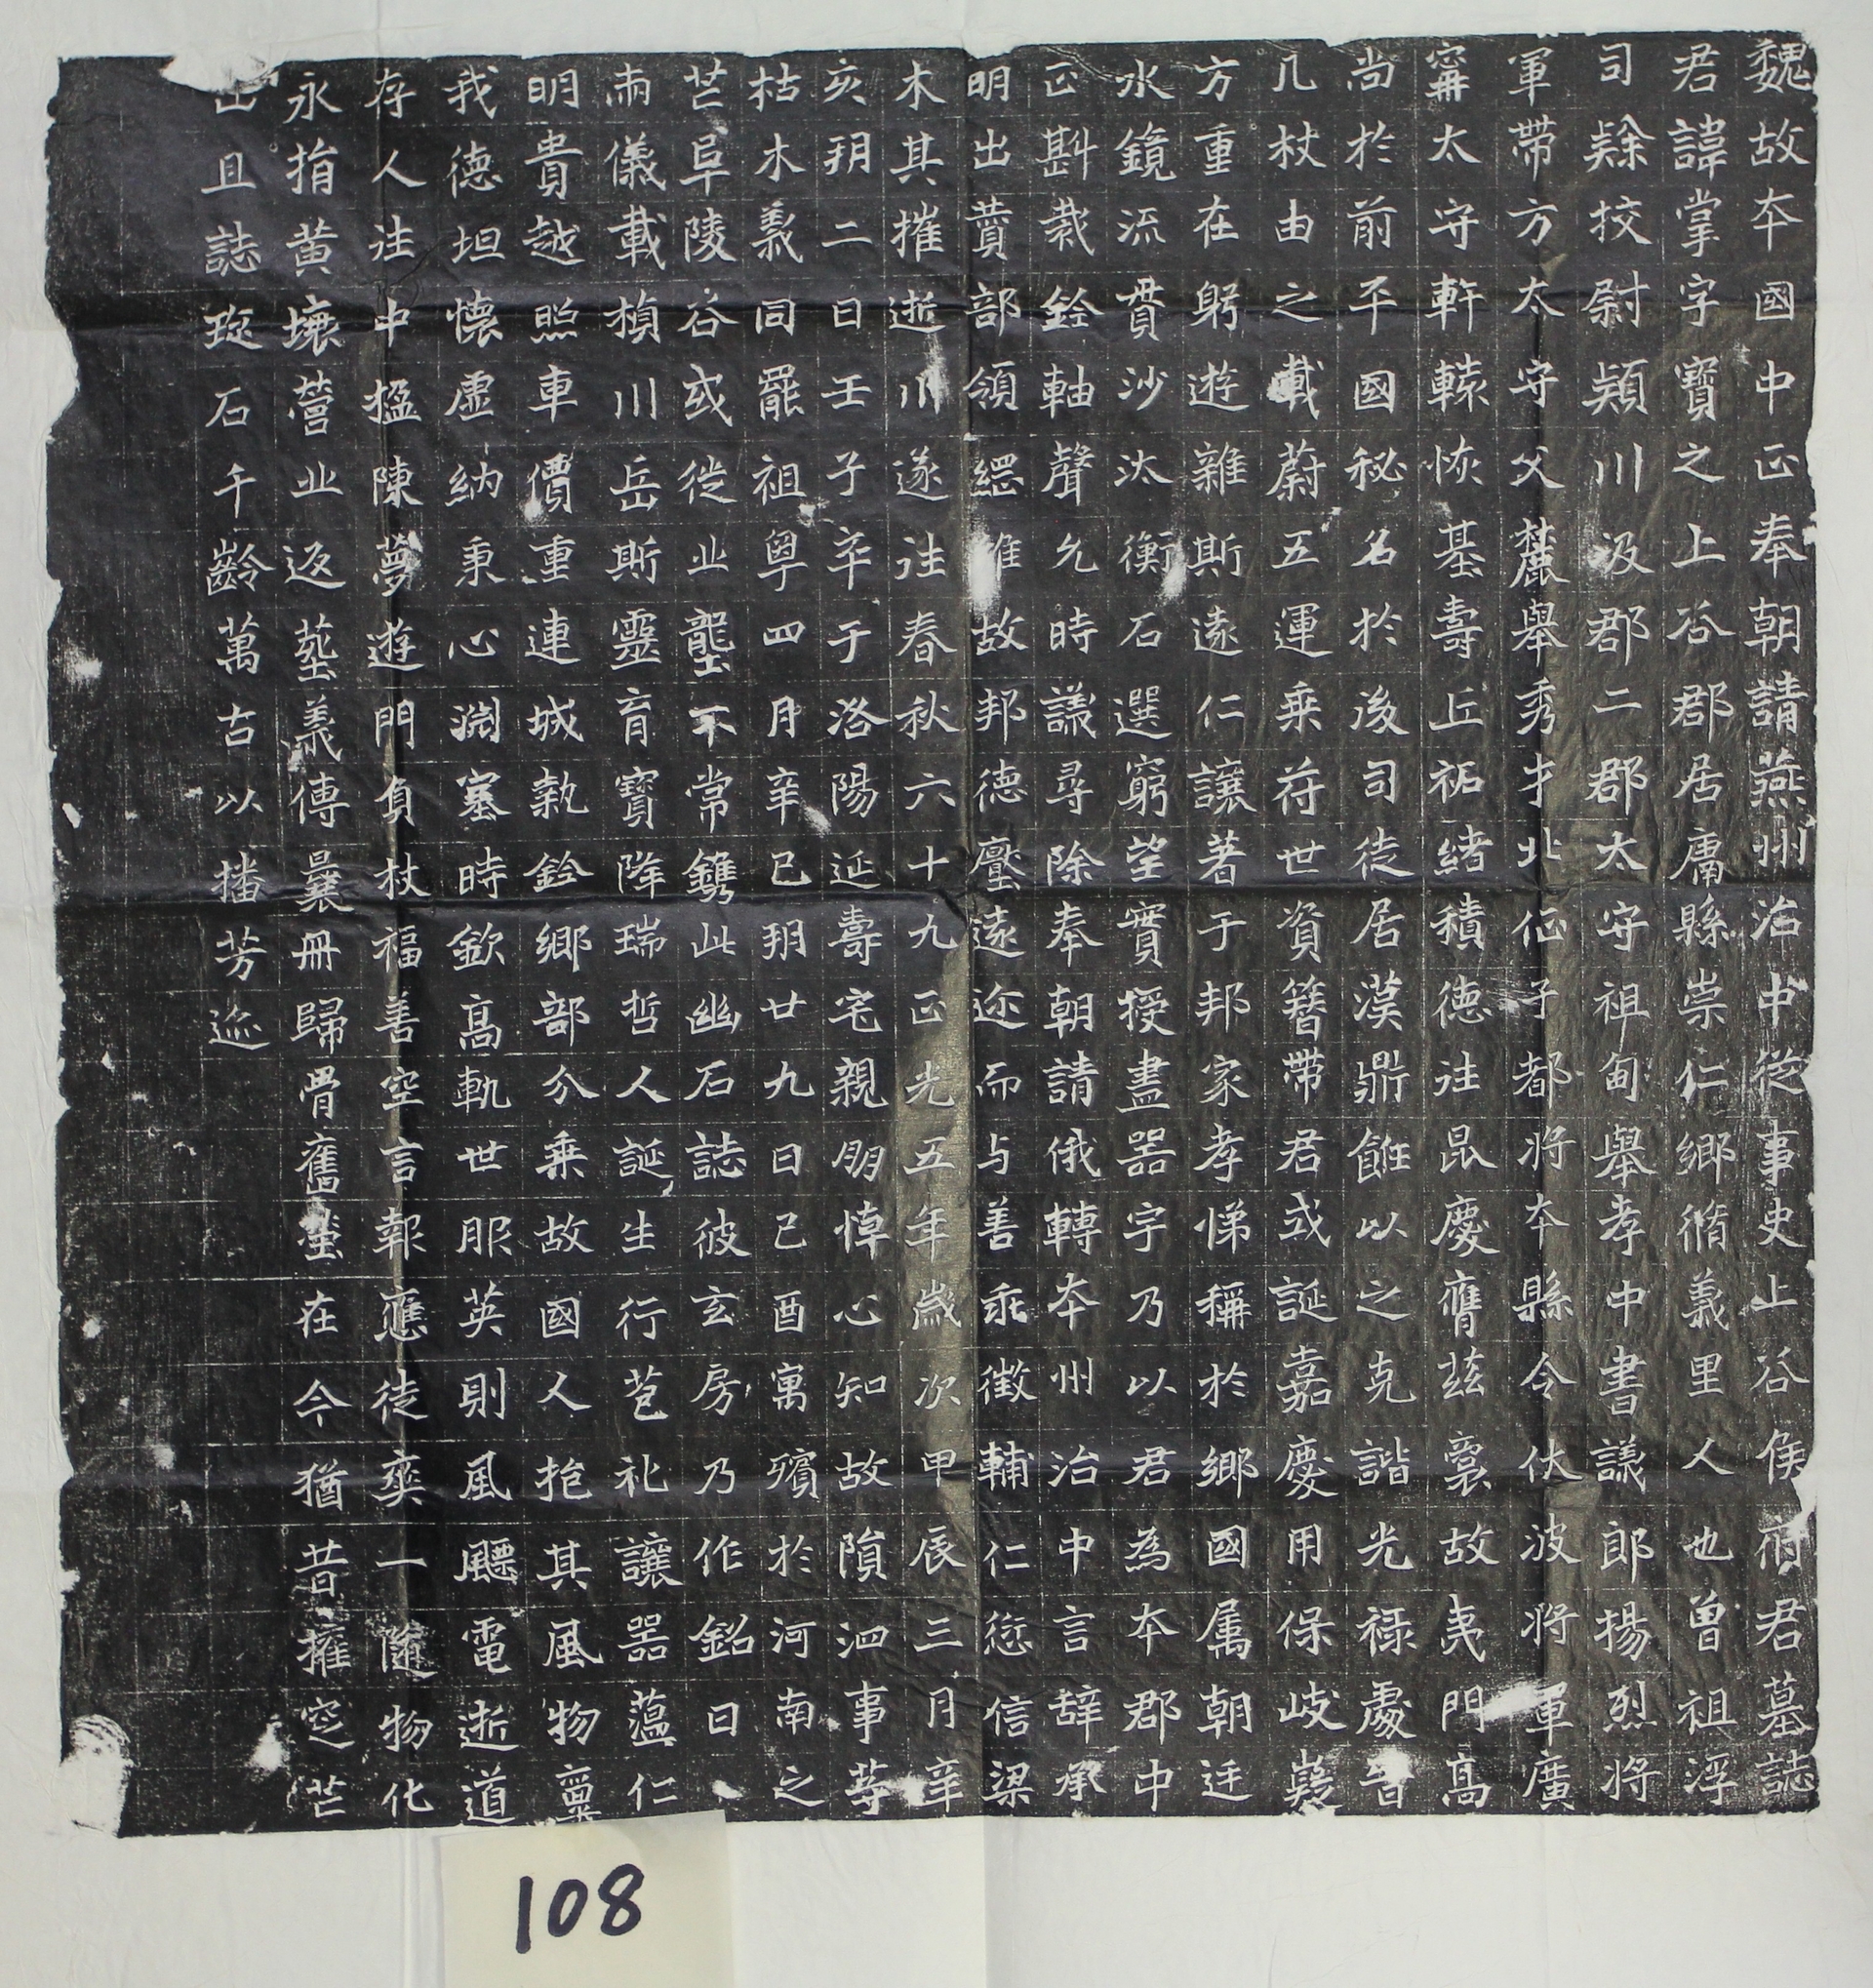 魏故夲國中正奉朝請燕州治中從事史上谷侯府君墓誌
君諱掌字寶之上谷郡居庸縣崇仁鄉脩義里人也曾祖浮
司隸挍尉潁川汲郡二郡太守祖甸舉孝中書議郎揚烈將
軍帶方太守父麓舉秀才北征子都將夲縣令伏波將軍廣
甯太守軒轅恢基壽丘祏緒積德往昆慶膺茲裔故夷門高
尚於前平國秘名於後司徒居漢鼎餁以之克諧光祿處晋
几杖由之載蔚五運乘苻世資簪帶君或誕嘉慶用保岐嶷
方重在躬遊雜斯遠仁讓著于邦家孝悌稱於鄉國属朝迋
水鏡流貫沙汰衡石選窮望實授盡器宇乃以君為本郡中
正斟裁銓軸聲允時議尋除奉朝請俄轉夲州治中言辞承
明出賛部領綏維故邦德壓遠迩而与善乖徵輔仁愆信梁
木其摧逝川遂往春秋六十九正光五年歲次甲辰三月辛
亥朔二日壬子卒于洛陽延壽宅親朋悼心知故隕泗事等
枯木義同罷祖粤四月辛巳朔廿九日己酉寓殯於河南之
芒阜陵谷或從业壟不常鐫此幽石誌彼玄房乃作銘曰
兩儀載楨川岳斯靈育寶降瑞哲人誕生行苞礼讓器蘊仁
明貴越照車價重連城執鈴鄉部分乘故國人抱其風物稟
我德坦懷虛納秉心淵塞時欽高軌世服英則風飈電逝道
存人往中楹陳夢遊門負杖福善空言報應徒奭一隨物化
永捐黃壤營业返塟義傳曩冊歸骨舊塋在今猶昔權窆芒
山且誌琁石千齡萬古以播芳迩